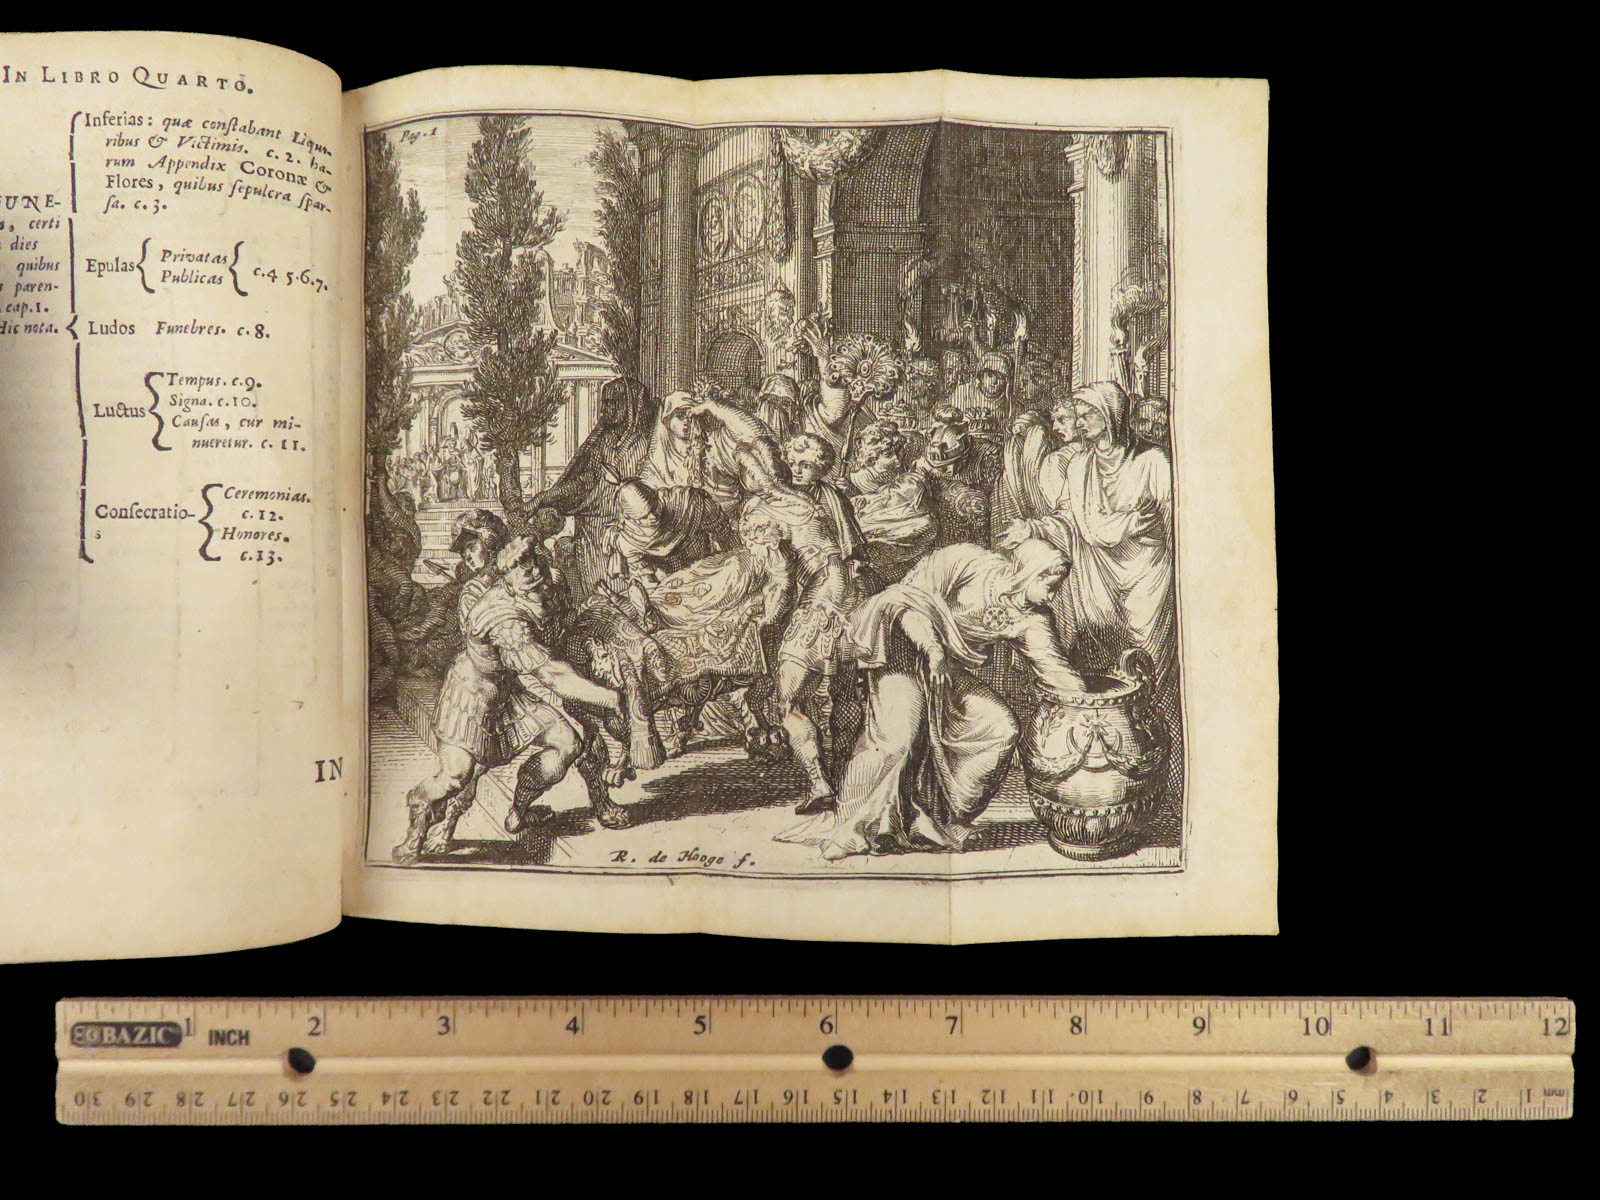 IN LIBRO QUARTO.
Inferias: quæ conſtabant Liquo-
ribus & Victimis. c. 2. ha-
rum Appendix Coronæ &
Flores, quibus ſepulcra ſpar-
ſa. c. 3.
FUNE-
certi
dies
quibus
paren-
cap. 1.
Hic nota.
Epulas { Privatas
Publicas } c. 4 5. 6. 7.
Ludos Funebres. c. 8.
Luctus { Tempus. c. 9.
Signa. c. 10.
Cauſas, cur mi-
nueretur. c. 11.
Conſecratio-
s { Ceremonias.
c. 12.
Honores.
c. 13.
IN
Pag. 1
R. de Hooge f.
BAZIC
INCH
1 2 3 4 5 6 7 8 9 10 11 12
30 29 28 27 26 25 24 23 22 21 20 19 18 17 16 15 14 13 12 11 10 9 8 7 6 5 4 3 2 1 mm